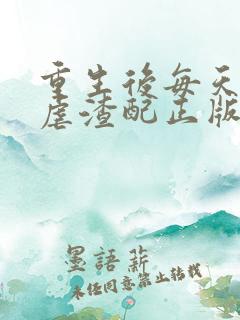 重生後每天
虐渣配正版
墨語薪
未經同意禁止轉載